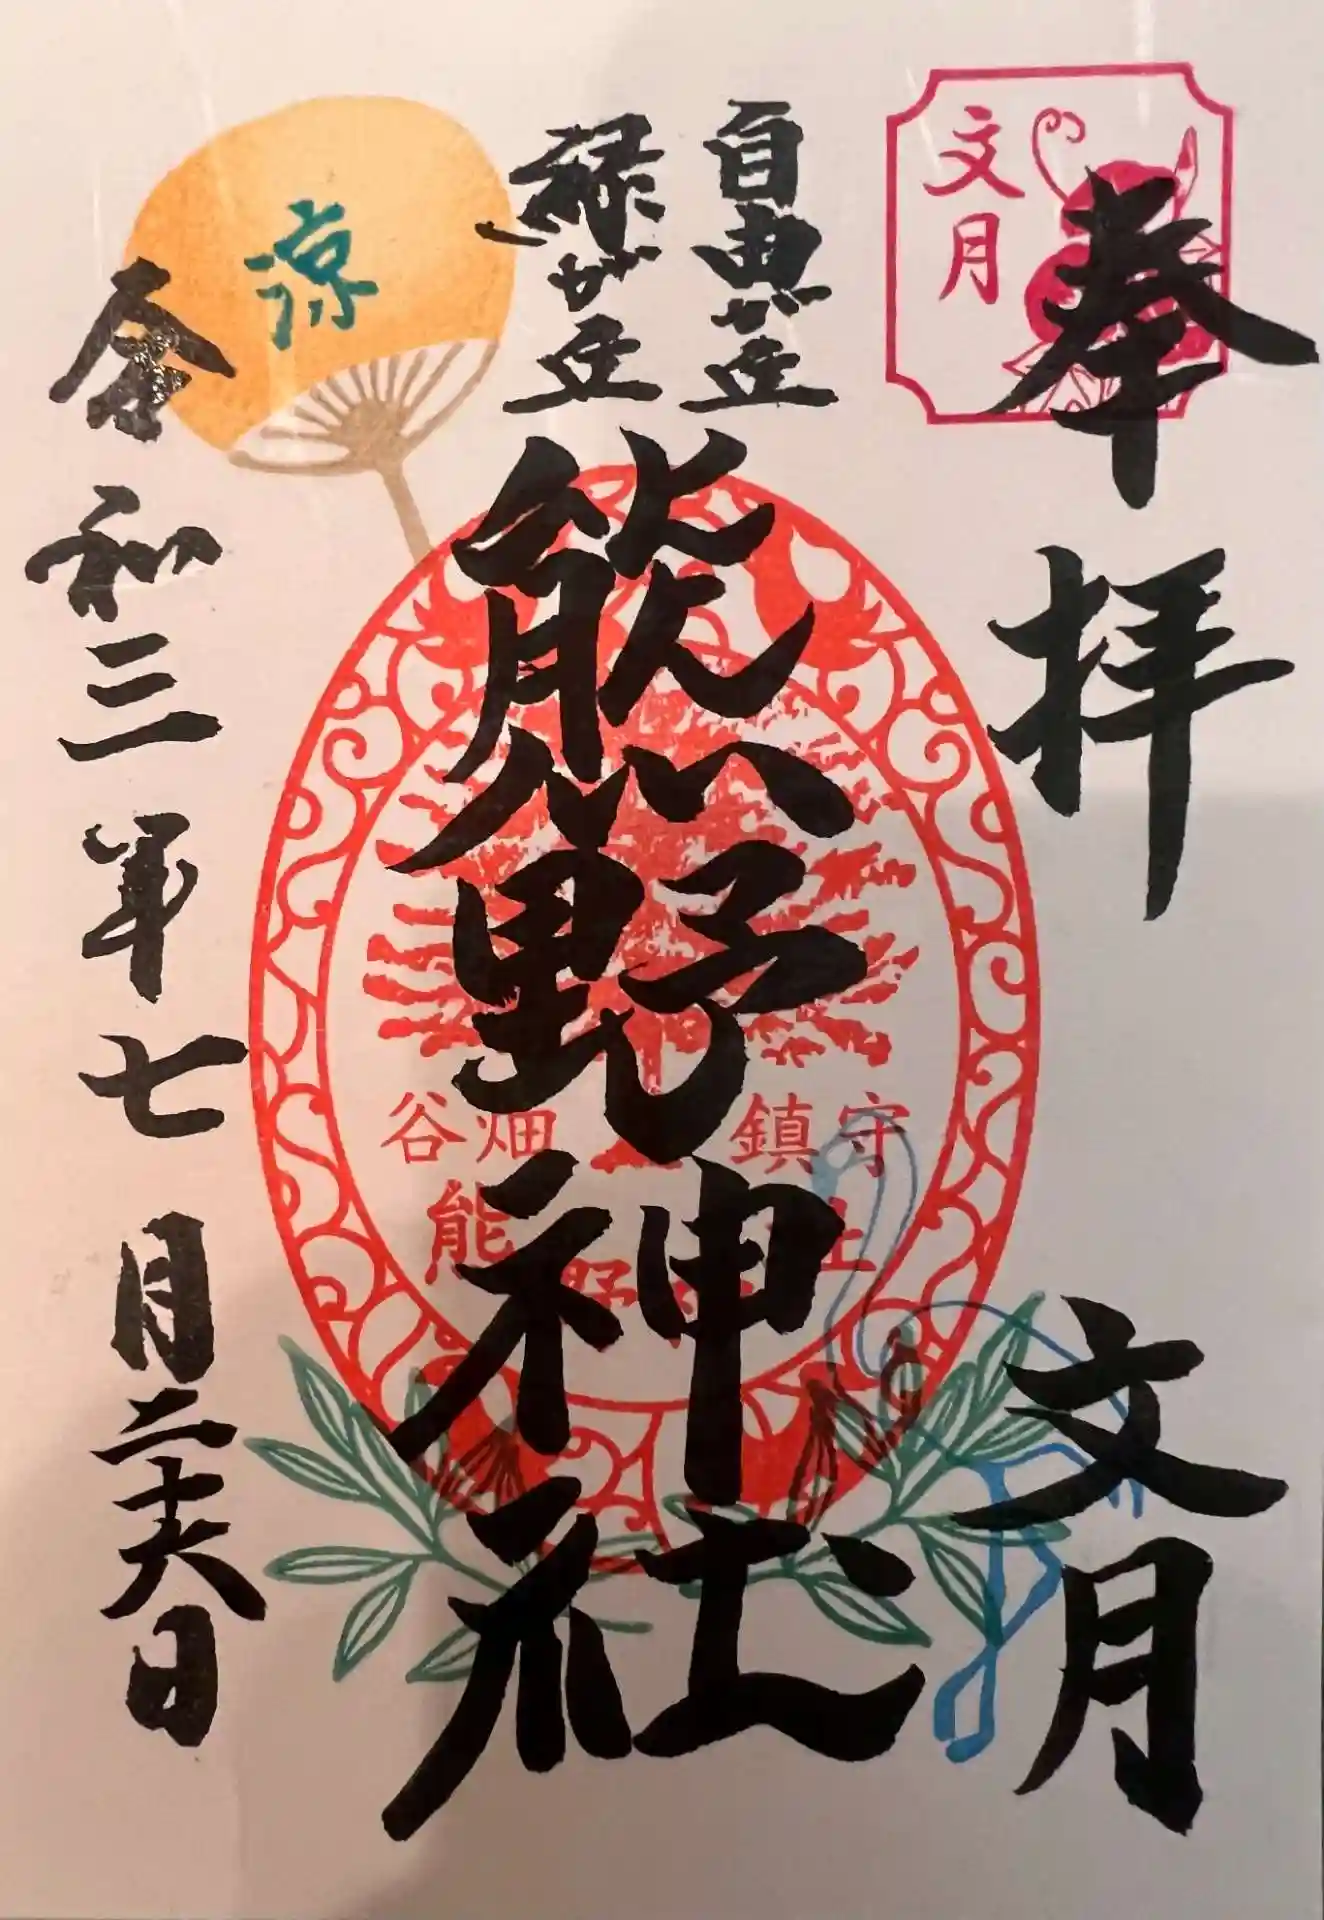 奉拝
文月
文月
自由が丘
緑が丘
熊野神社
谷畑 鎮守
熊野 社
涼
令和三年七月二十六日